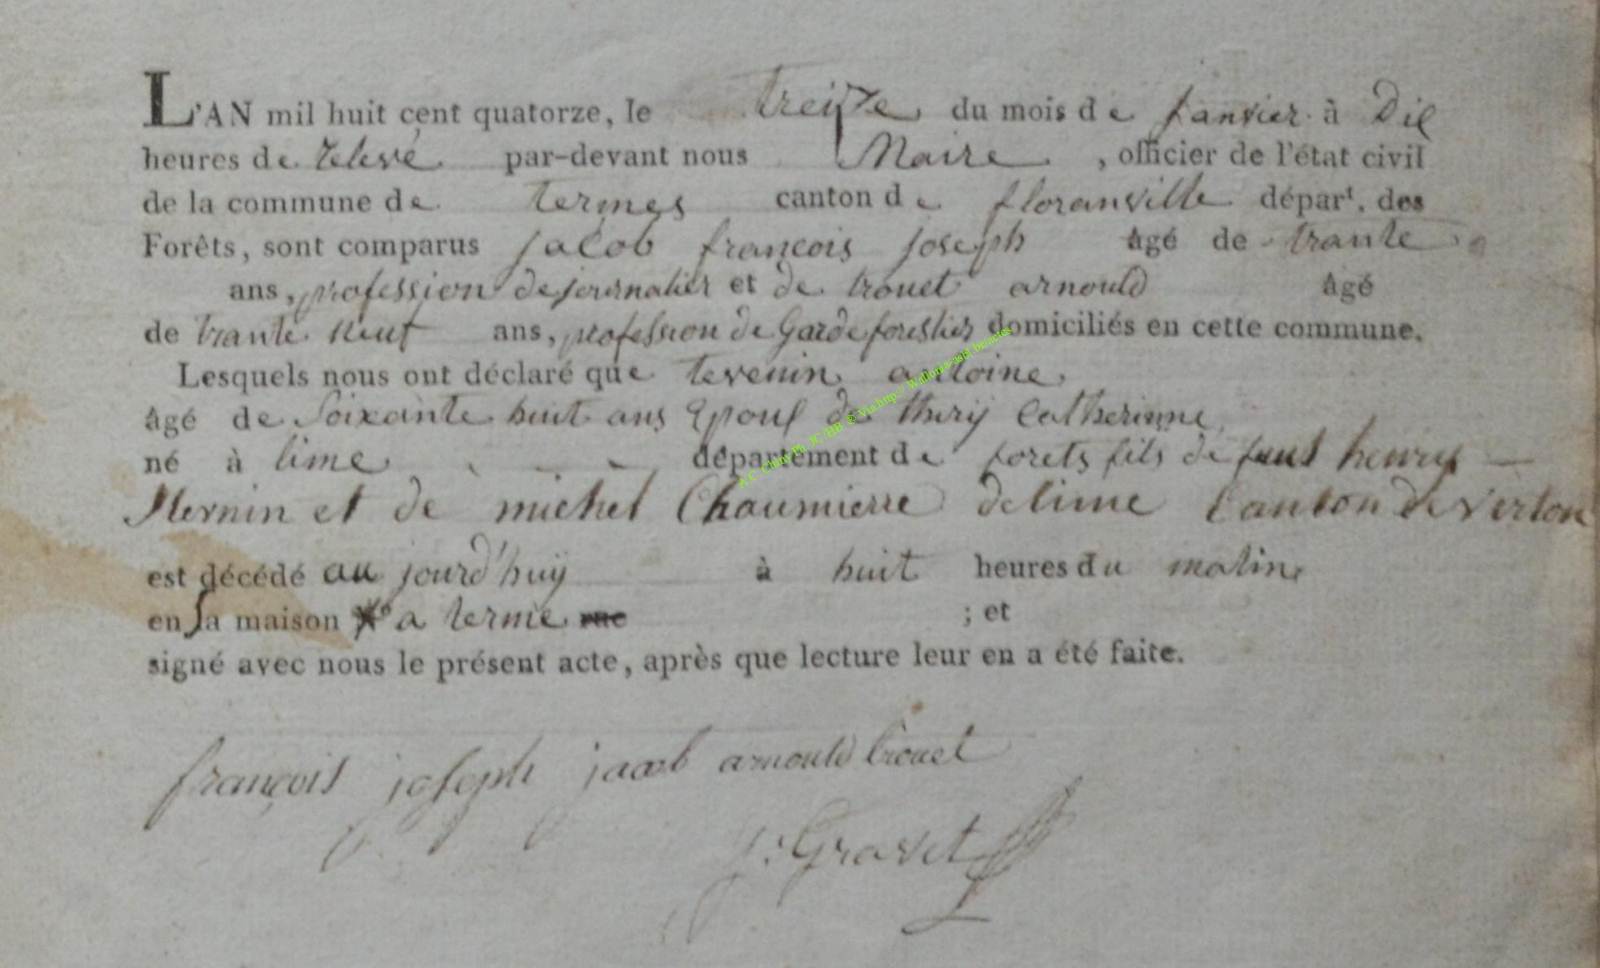 L'AN mil huit cent quatorze, le treize du mois de janvier à Dix
heures de relevé par-devant nous Maire, officier de l'état civil
de la commune de termes canton de floranvilleépart. des
Forêts, sont comparus jacob francois joseph âgé de trante
ans, profession de journalier et de trouet arnould âgé
de trante neuf ans, profession de Garde forestier domiciliés en cette commune.
Lesquels nous ont déclaré que tevenin antoine,
âgé de Soixante huit ans Epous de thiry Catherinne
né à lime département de forets fils de feus henry
et de michel Chaumierre de lime Canton de Virton
est décédé au jourd'huy à huit heures du matin
en sa maison a terme rue ; et
signé avec nous le présent acte, après que lecture leur en a été faite.
françois joseph jacob arnould trouet
J: Gravet